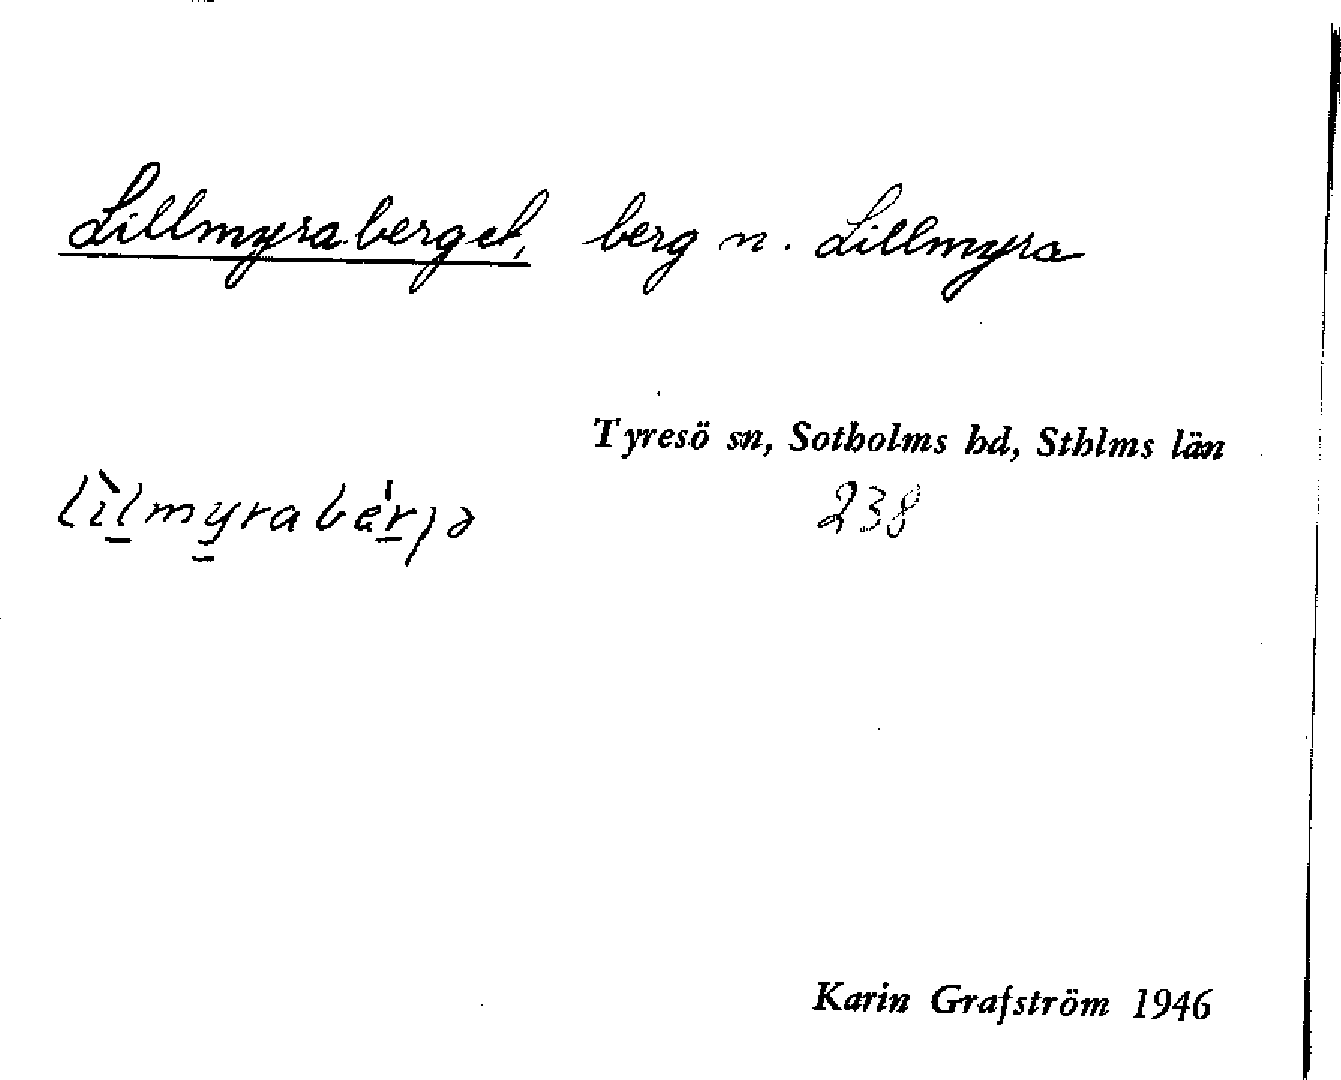 Lillmyraberget, berg n. Lillmyra
Tyresö sn, Sotholms hd, Sthlms län
lìlmyrabárjə
238
Karin Grafström 1946